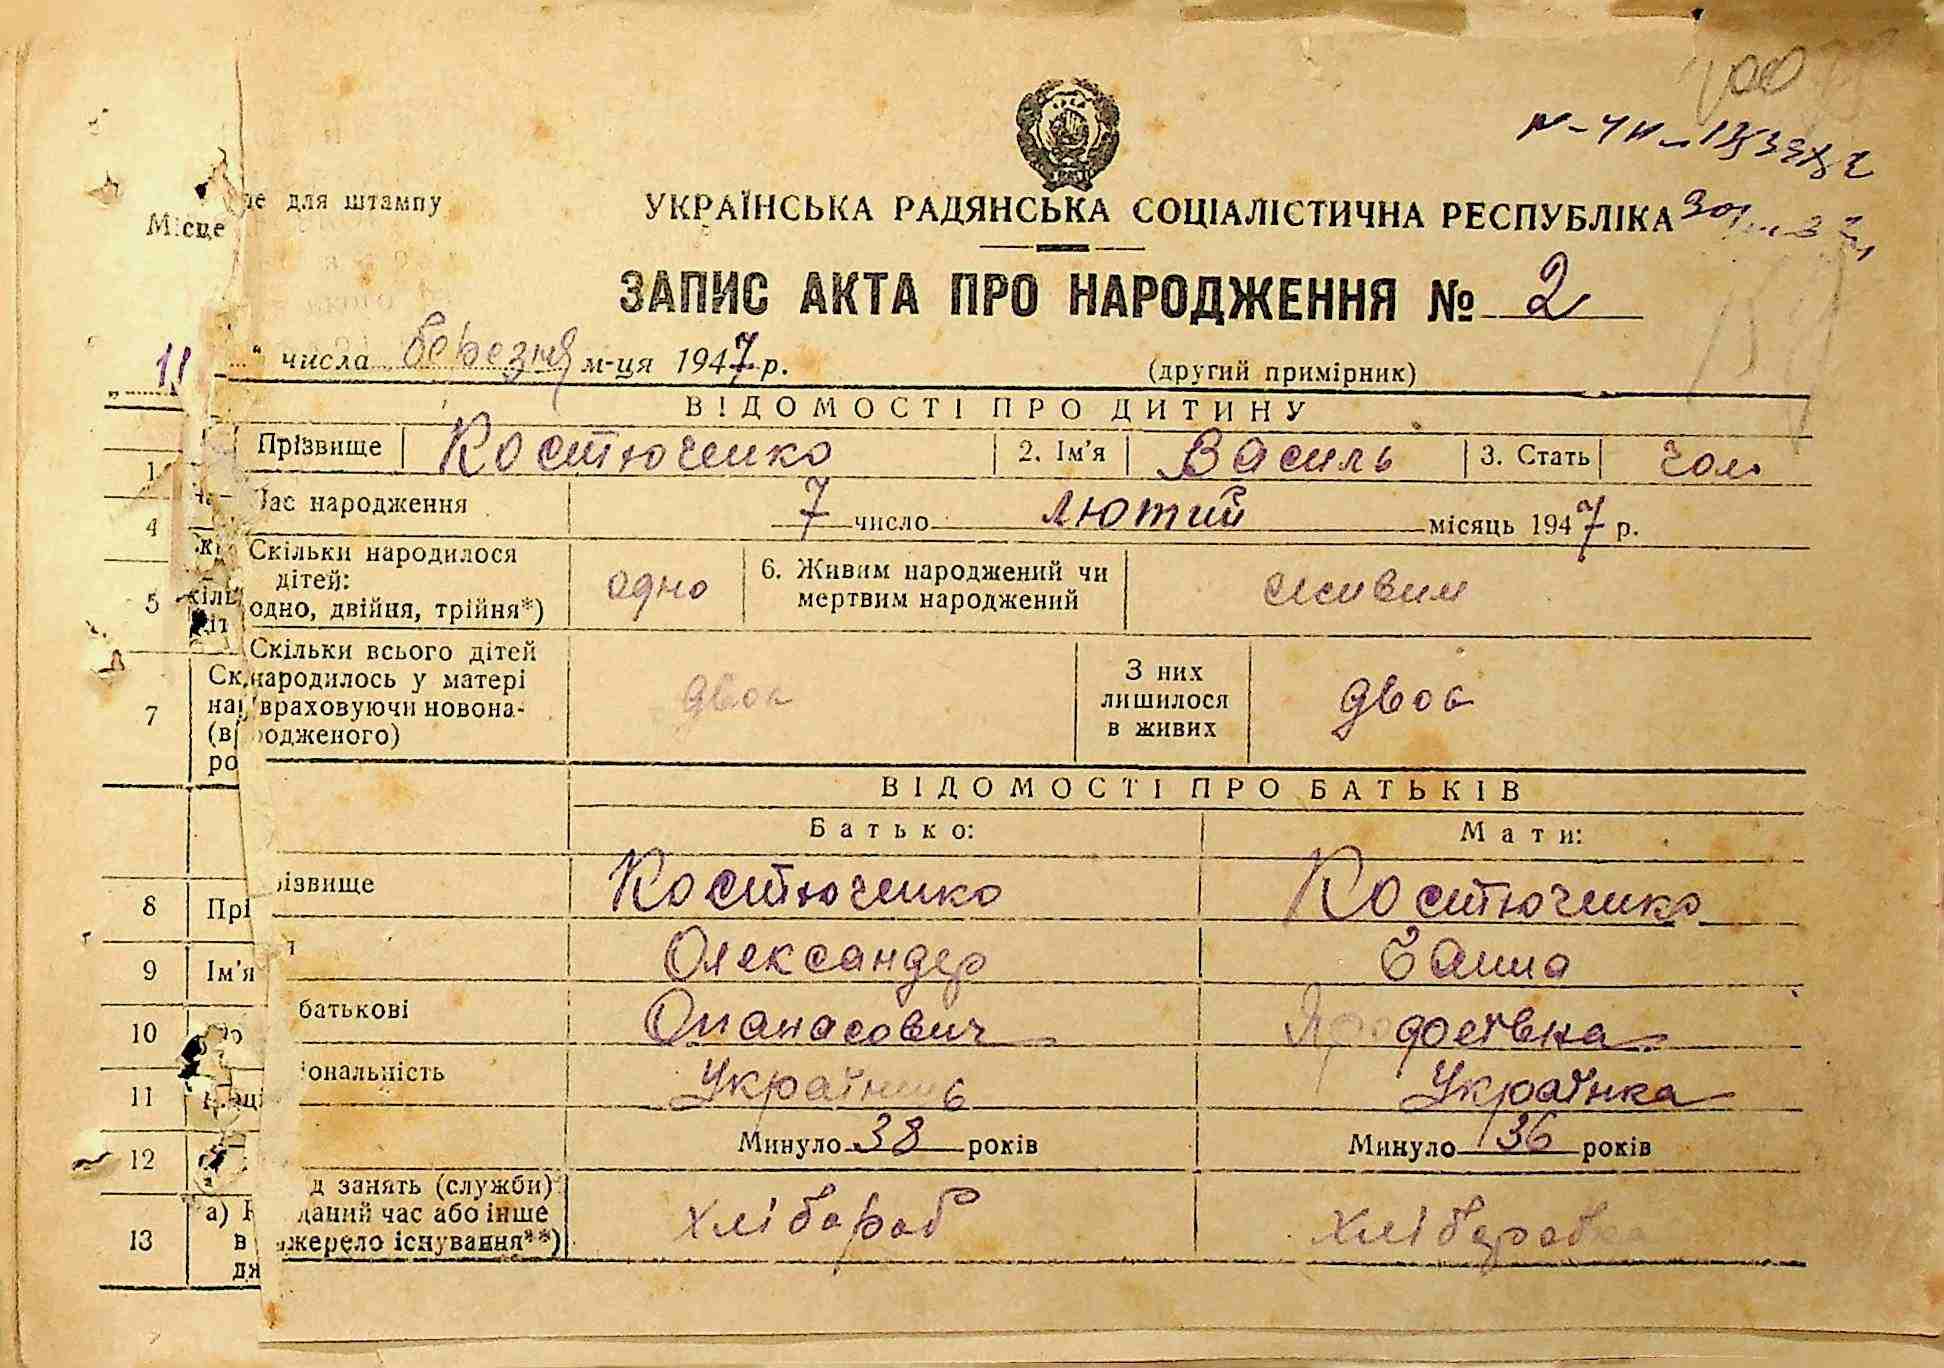 Місце це для штампу
УКРАЇНСЬКА РАДЯНСЬКА СОЦІАЛІСТИЧНА РЕСПУБЛІКА
ЗАПИС АКТА ПРО НАРОДЖЕННЯ № 2
11 " числа березня м-ця 1947 р.
(другий примірник)
ВІДОМОСТІ ПРО ДИТИНУ
1 Прізвище Костюченко 2. Ім'я Василь 3. Стать чол.
4 Час народження 7 число лютий місяць 1947 р.
5 Скільки народилося дітей: одно, двійня, трійня*) одно 6. Живим народжений чи мертвим народжений живим
7 Скільки всього дітей народилось у матері враховуючи новона- родженого) двоє З них лишилося в живих двоє
ВІДОМОСТІ ПРО БАТЬКІВ
Батько: Мати:
8 Прі різвище Костюченко Костюченко
9 Ім'я Олександер Ганна
10 По батькові Опанасович
11 Наці іональність Українець Українка
12 Минуло 38 років Минуло 36 років
13 а) д занять (служби) в даний час або інше джерело існування**) хлібороб хліборобка